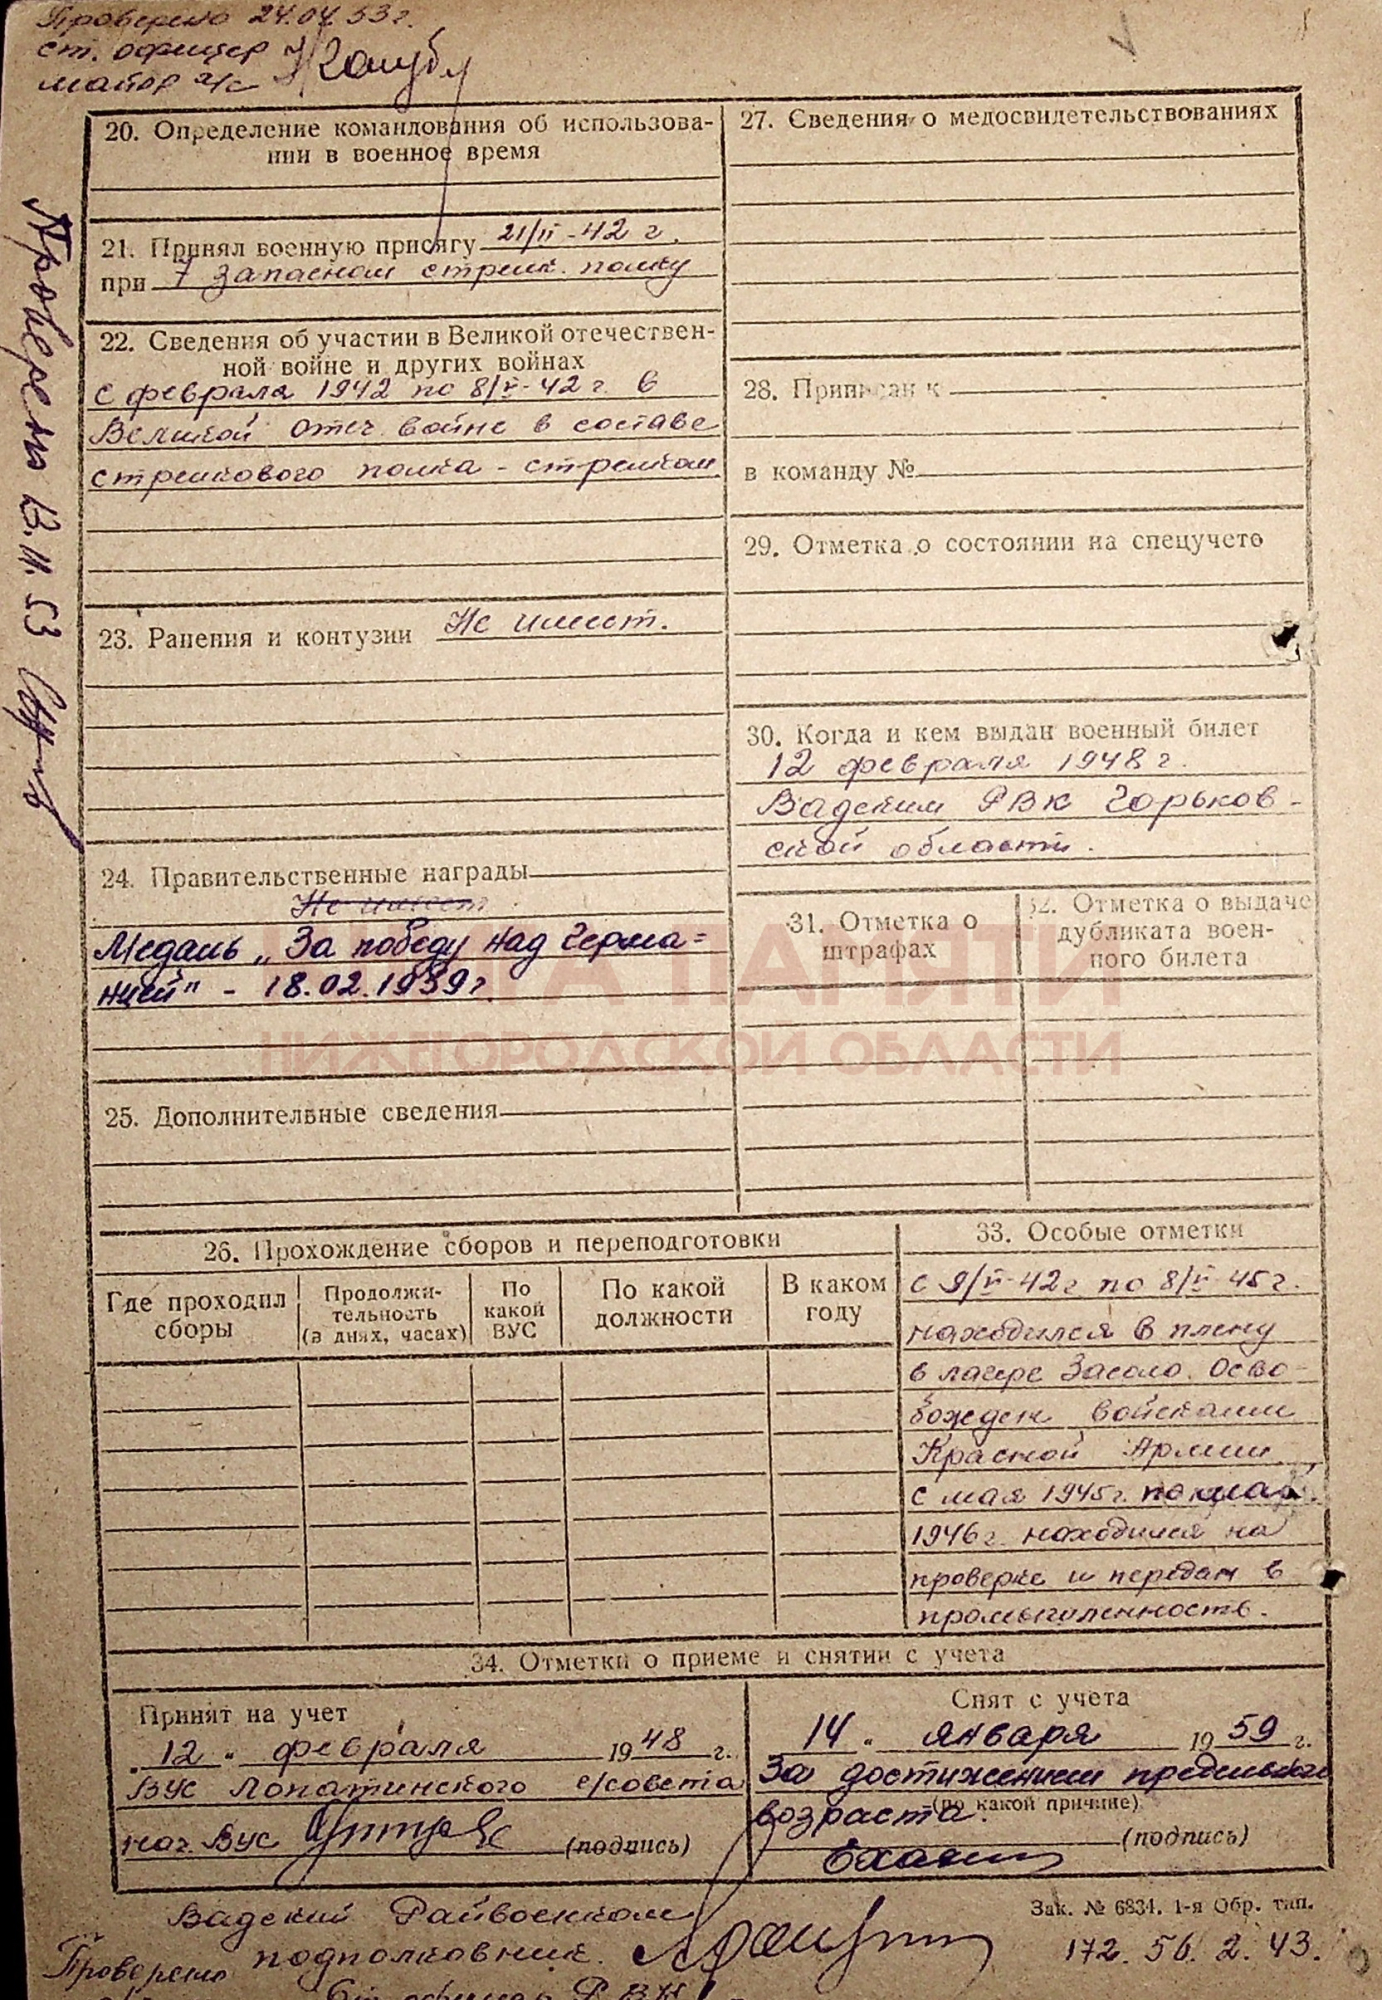 Проверено 24.04.53 г.
ст. офицер
майор а/с
Проверено 13.11.53
20. Определение командования об использова-
нии в военное время
21. Принял военную присягу 21/II-42 г.
при 7 запасном стрелк. полку
22. Сведения об участии в Великой отечествен-
ной войне и других войнах
с февраля 1942 по 8/V-42 г. в
Великой отеч. войне в составе
стрелкового полка - стрелком
23. Ранения и контузии Не имеет.
24. Правительственные награды
Не имеет
Медаль „За победу над Герма=
нией" - 18.02.1959 г.
25. Дополнительные сведения
27. Сведения о медосвидетельствованиях
28. Приписан к
в команду №
29. Отметка о состоянии на спецучето
30. Когда и кем выдан военный билет
12 февраля 1948 г.
Вадским РВК Горьков-
ской области.
31. Отметка о
штрафах
32. Отметка о выдаче
дубликата воен-
ного билета
КНИГА ПАМЯТИ
НИЖЕГОРОДСКОЙ ОБЛАСТИ
26. Прохождение сборов и переподготовки
Где проходил
сборы
Продолжи-
тельность
(в днях, часах)
По
какой
ВУС
По какой
должности
В каком
году
33. Особые отметки
с 9/V-42 г по 8/V-45 г.
находился в плену
в лагере Засоло. Осво-
божден войсками
Красной Армии
с мая 1945 г. по май
1946 г. находился на
проверке и передан в
промышленность.
34. Отметки о приеме и снятии с учета
Принят на учет
„12" февраля 1948 г.
ВУС Лопатинского с/совета
нач. ВУС (подпись)
Снят с учета
14 " января 1959 г.
За достижением предельного
(по какой причине)
возраста.
(подпись)
Вадский Райвоенком
подполковник
Зак. № 6834. 1-я Обр. тип.
172. 56. 2. 43.
Проверено
Ст. офицер РВК